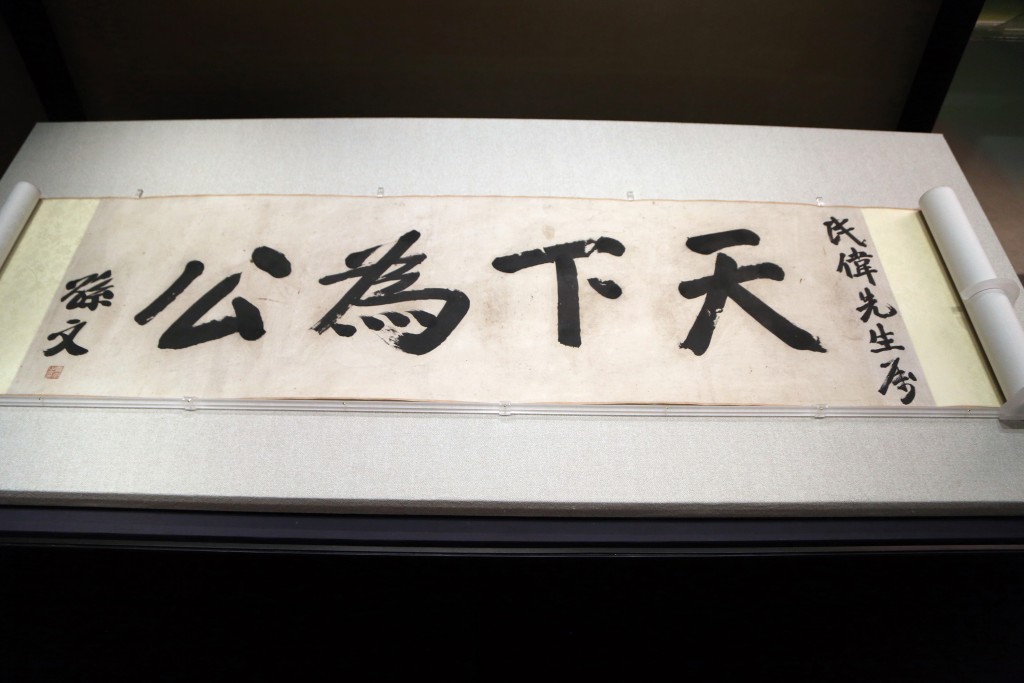 民偉先生属
天下為公
孫文